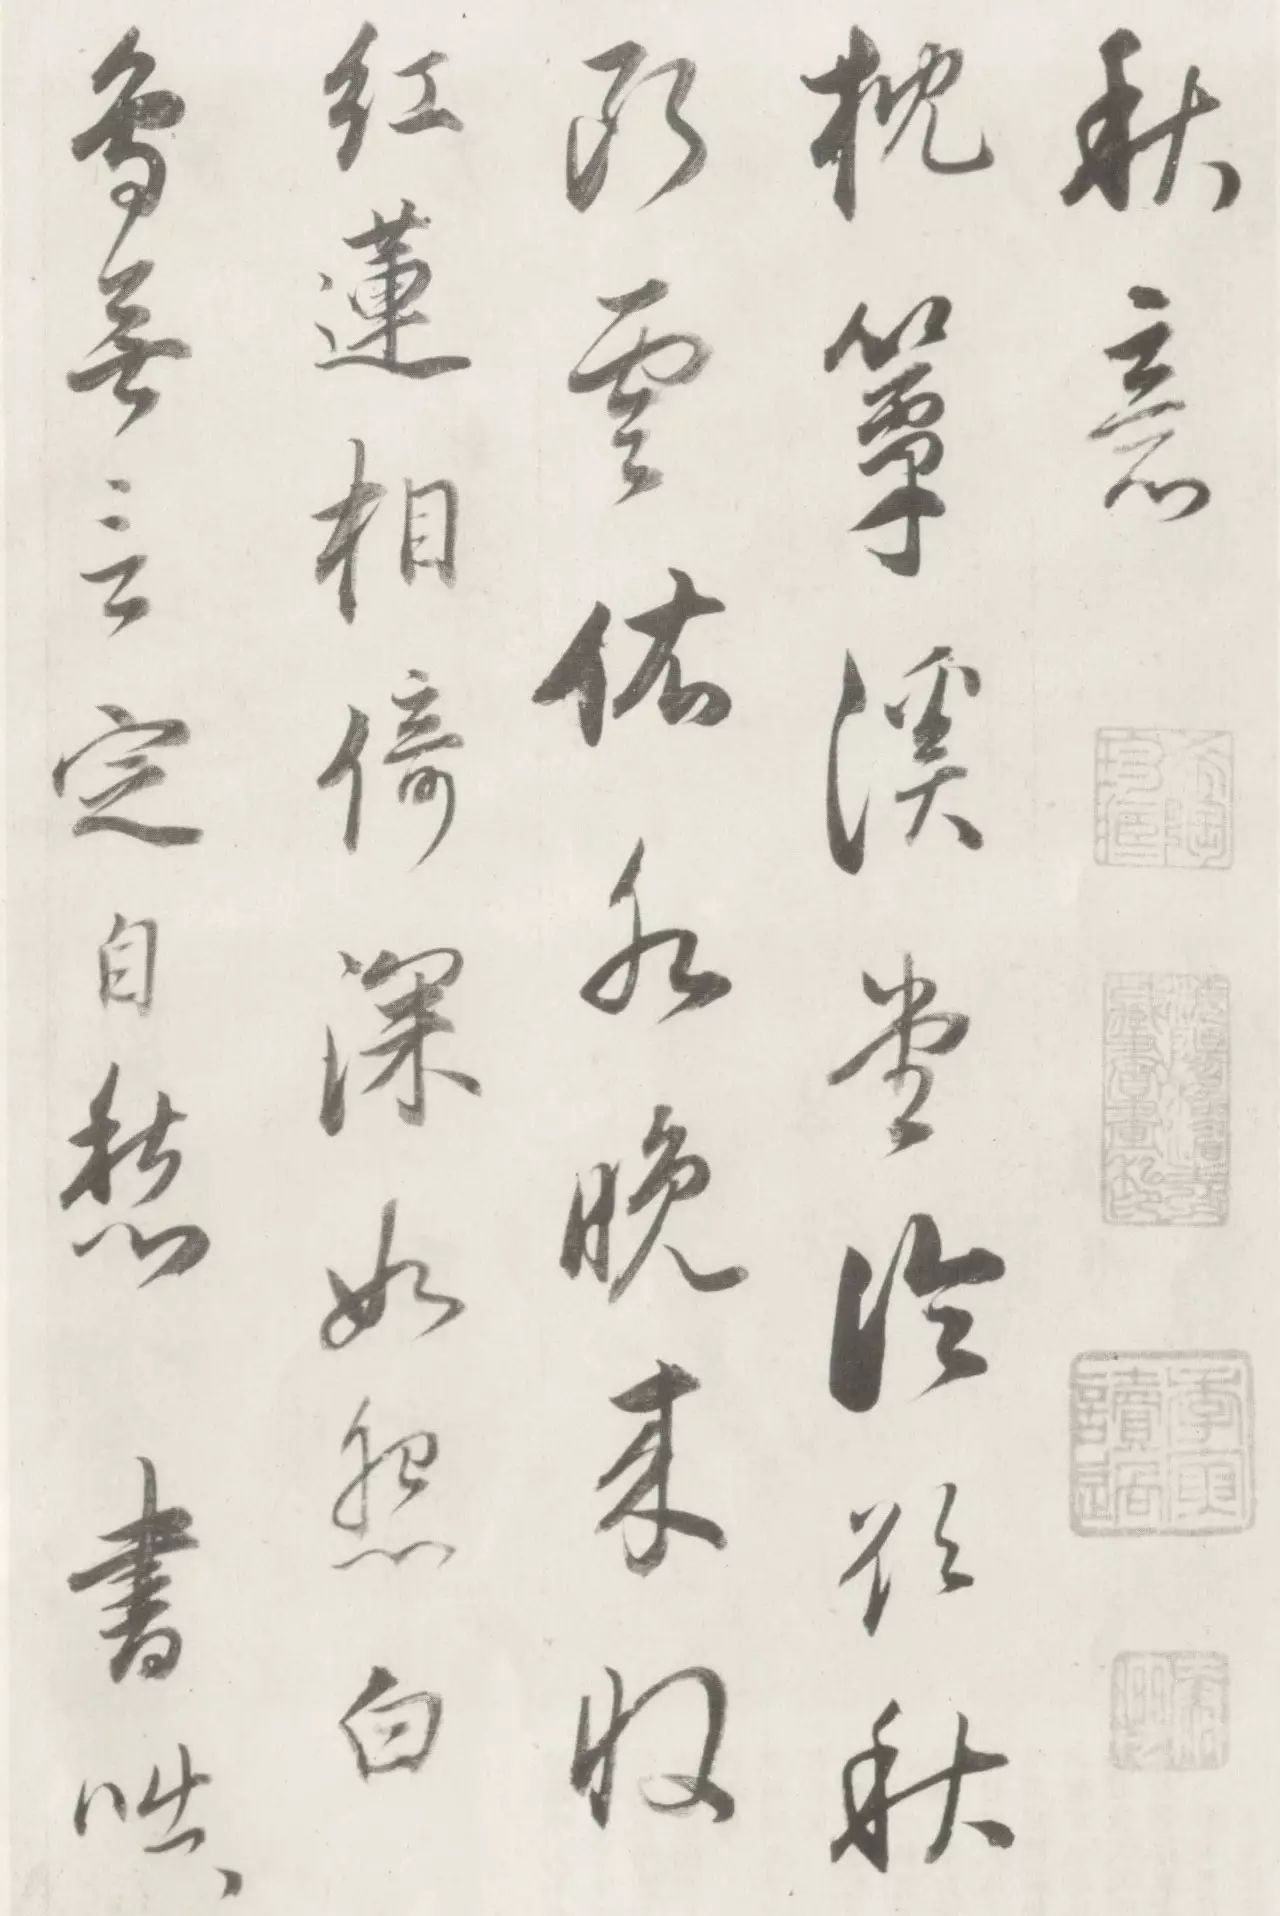 秋意
枕簟溪堂冷欲秋
斷雲依水晚來收
紅蓮相倚深如怨白
鳥無言定自愁 書咄〻